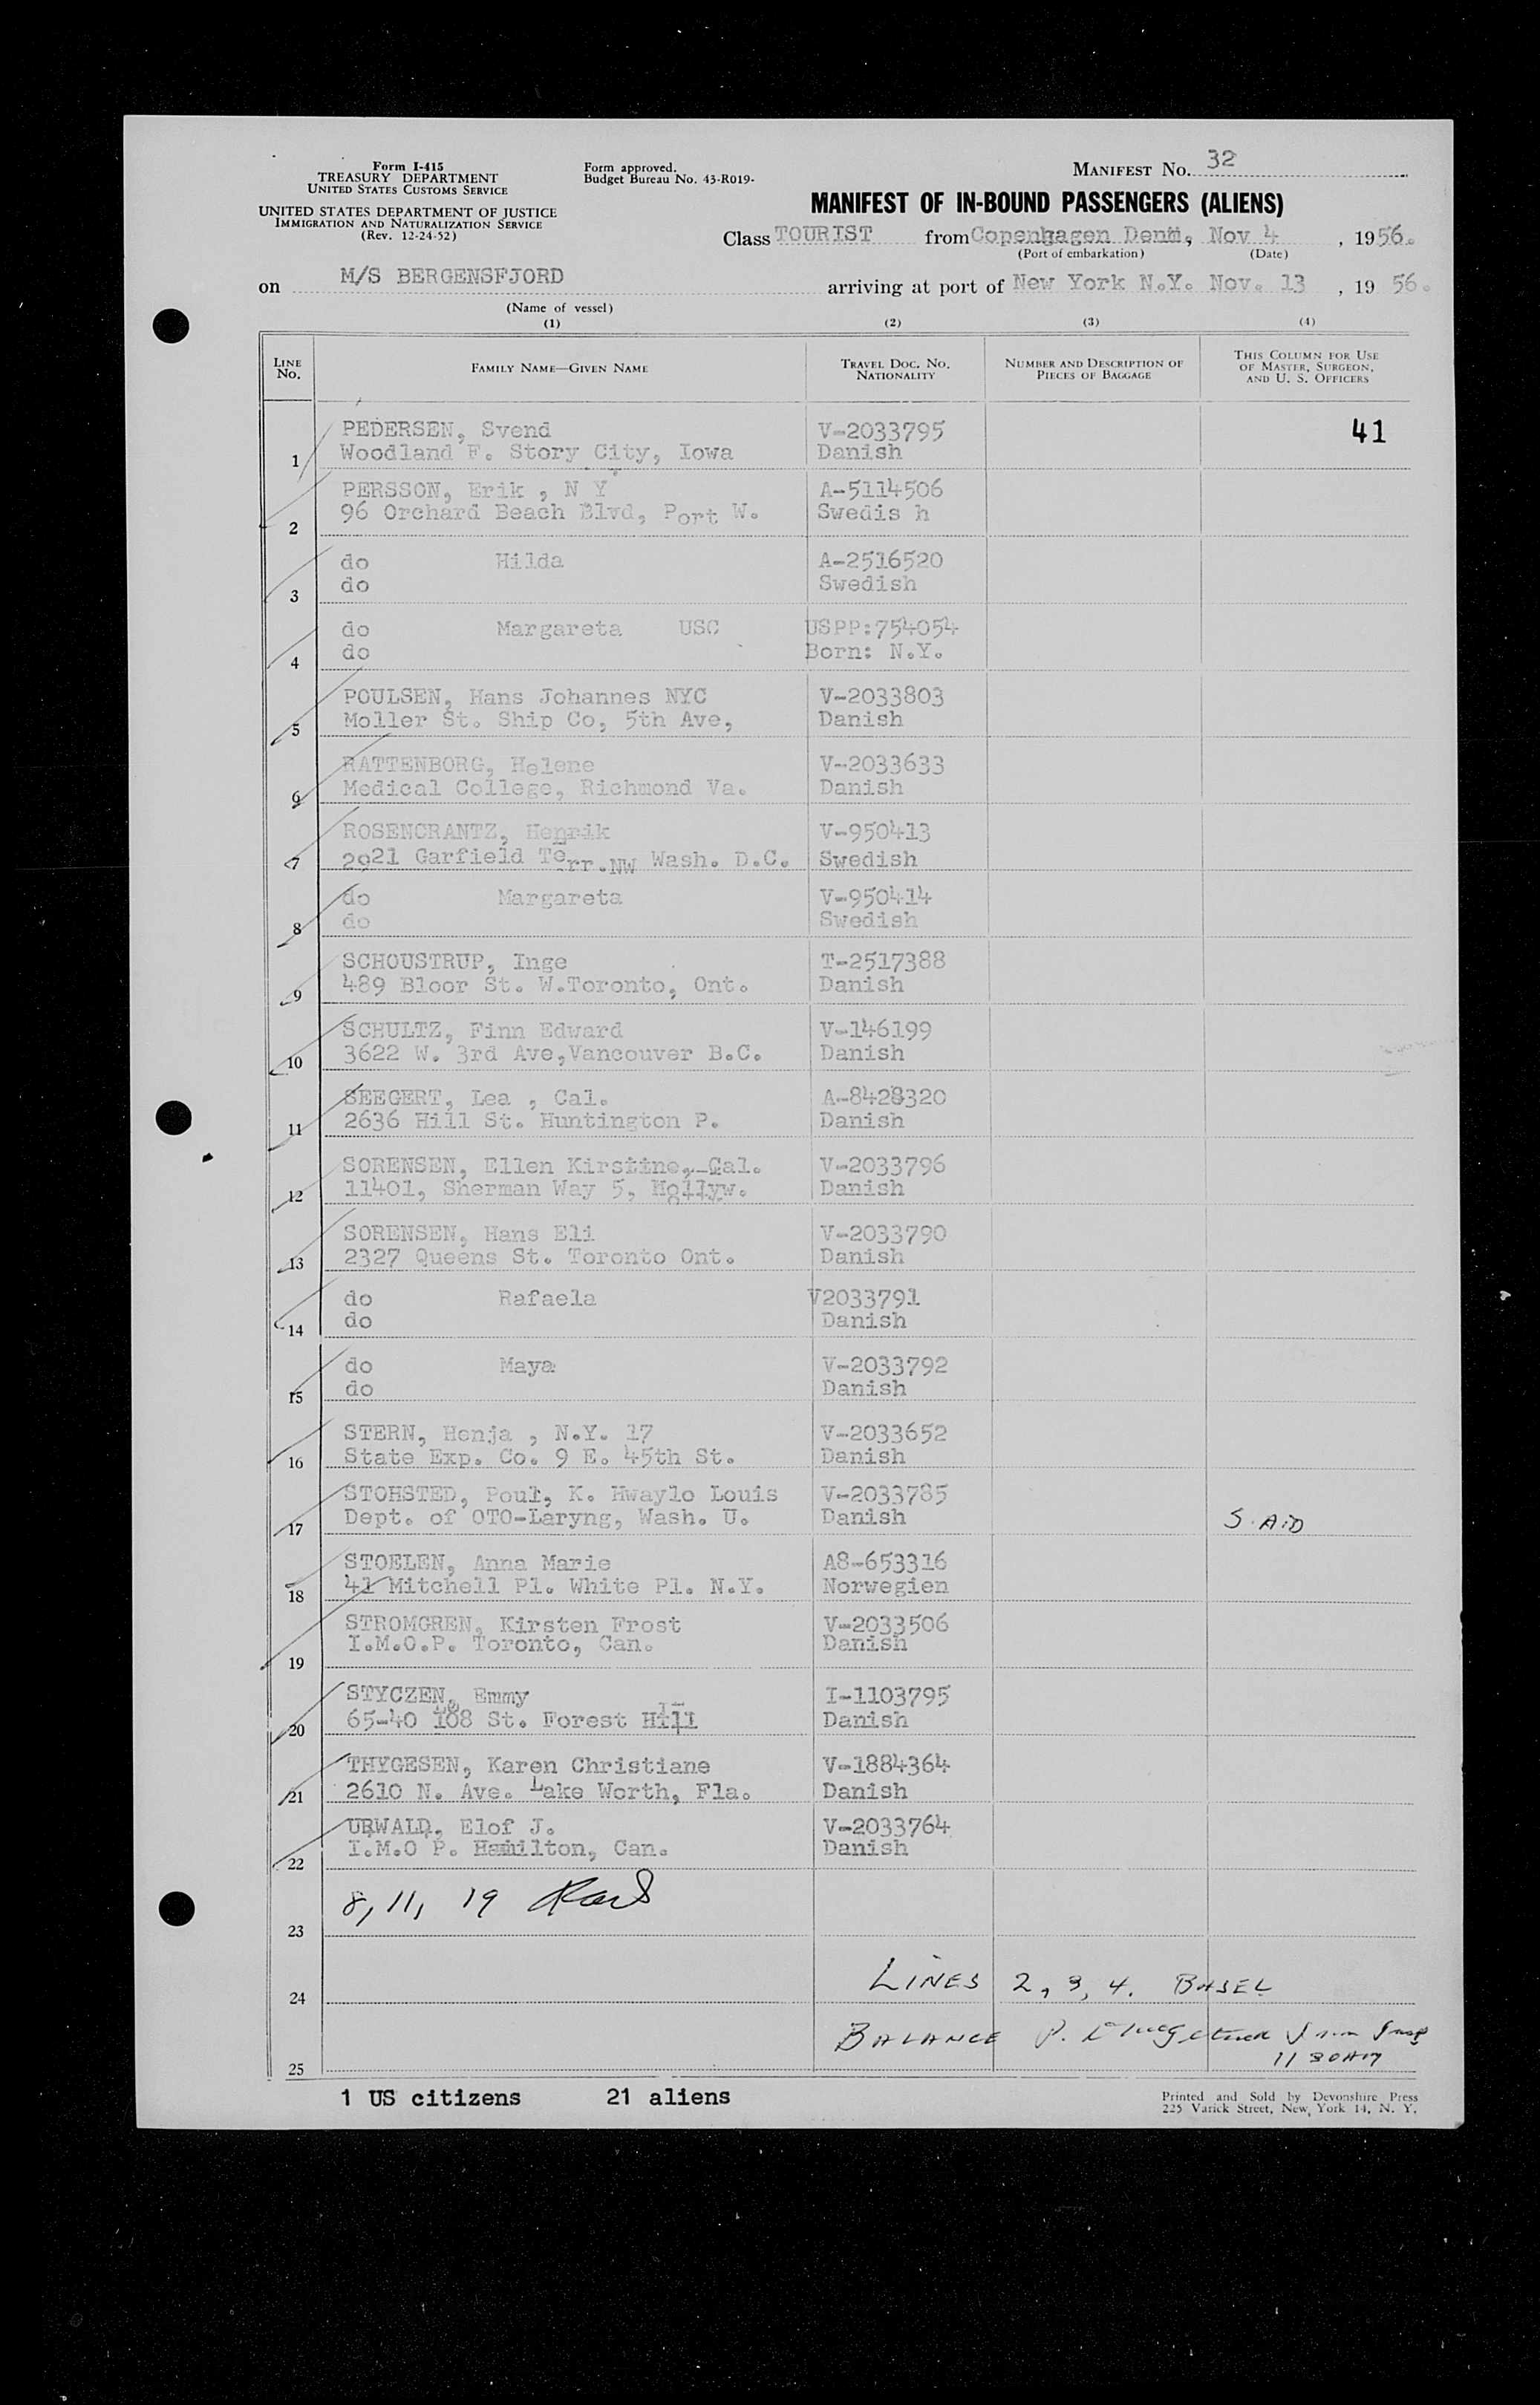 Form I-415
TREASURY DEPARTMENT
UNITED STATES CUSTOMS SERVICE
UNITED STATES DEPARTMENT OF JUSTICE
IMMIGRATION AND NATURALIZATION SERVICE
(Rev. 12-24-52)
Form approved.
Budget Bureau No. 43-R019-
MANIFEST No. 32
MANIFEST OF IN-BOUND PASSENGERS (ALIENS)
Class TOURIST from Copenhagen Denm, Nov 4, 1956.
(Port of embarkation) (Date)
on M/S BERGENSFJORD arriving at port of New York N.Y. Nov. 13, 19 56.
(Name of vessel)
(1) (2) (3) (4)
LINE No. FAMILY NAME—GIVEN NAME TRAVEL DOC. No. NATIONALITY NUMBER AND DESCRIPTION OF PIECES OF BAGGAGE THIS COLUMN FOR USE OF MASTER, SURGEON, AND U. S. OFFICERS
PEDERSEN, Svend V-2033795 41
1 Woodland F. Story City, Iowa Danish
PERSSON, Erik , N Y A-5114506
2 96 Orchard Beach Blvd, Port W. Swedis h
do Hilda A-2516520
3 do Swedish
do Margareta USC USPP:754054
4 do Born: N.Y.
POULSEN, Hans Johannes NYC V-2033803
5 Moller St. Ship Co, 5th Ave, Danish
RATTENBORG, Helene V-2033633
6 Medical College, Richmond Va. Danish
ROSENCRANTZ, Henrik V-950413
7 2921 Garfield Terr.NW Wash. D.C. Swedish
do Margareta V-950414
8 do Swedish
SCHOUSTRUP, Inge T-2517388
9 489 Bloor St. W.Toronto, Ont. Danish
SCHULTZ, Finn Edward V-146199
10 3622 W. 3rd Ave,Vancouver B.C. Danish
SEEGERT, Lea , Cal. A-8428320
11 2636 Hill St. Huntington P. Danish
SORENSEN, Ellen Kirstine, Cal. V-2033796
12 11401, Sherman Way 5, Hollyw. Danish
SORENSEN, Hans Eli V-2033790
13 2327 Queens St. Toronto Ont. Danish
do Rafaela V2033791
14 do Danish
do Maya V-2033792
15 do Danish
STERN, Henja , N.Y. 17 V-2033652
16 State Exp. Co. 9 E. 45th St. Danish
STOHSTED, Poul, K. Hwaylo Louis V-2033785
17 Dept. of OTO-Laryng, Wash. U. Danish S. AiD
STOELEN, Anna Marie A8-653316
18 41 Mitchell Pl. White Pl. N.Y. Norwegien
STROMGREN, Kirsten Frost V-2033506
I.M.O.P. Toronto, Can. Danish
19
STYCZEN, Emmy I-1103795
20 65-40 108 St. Forest Hill Danish
THYGESEN, Karen Christiane V-1884364
21 2610 N. Ave. Lake Worth, Fla. Danish
URWALD, Elof J. V-2033764
I.M.O P. Hamilton, Can. Danish
22
8, 11, 19
23
LINES 2, 3, 4. BASEL
24
BALANCE P.
11 30AM
25
1 US citizens 21 aliens
Printed and Sold by Devonshire Press
225 Varick Street, New York 14, N. Y.